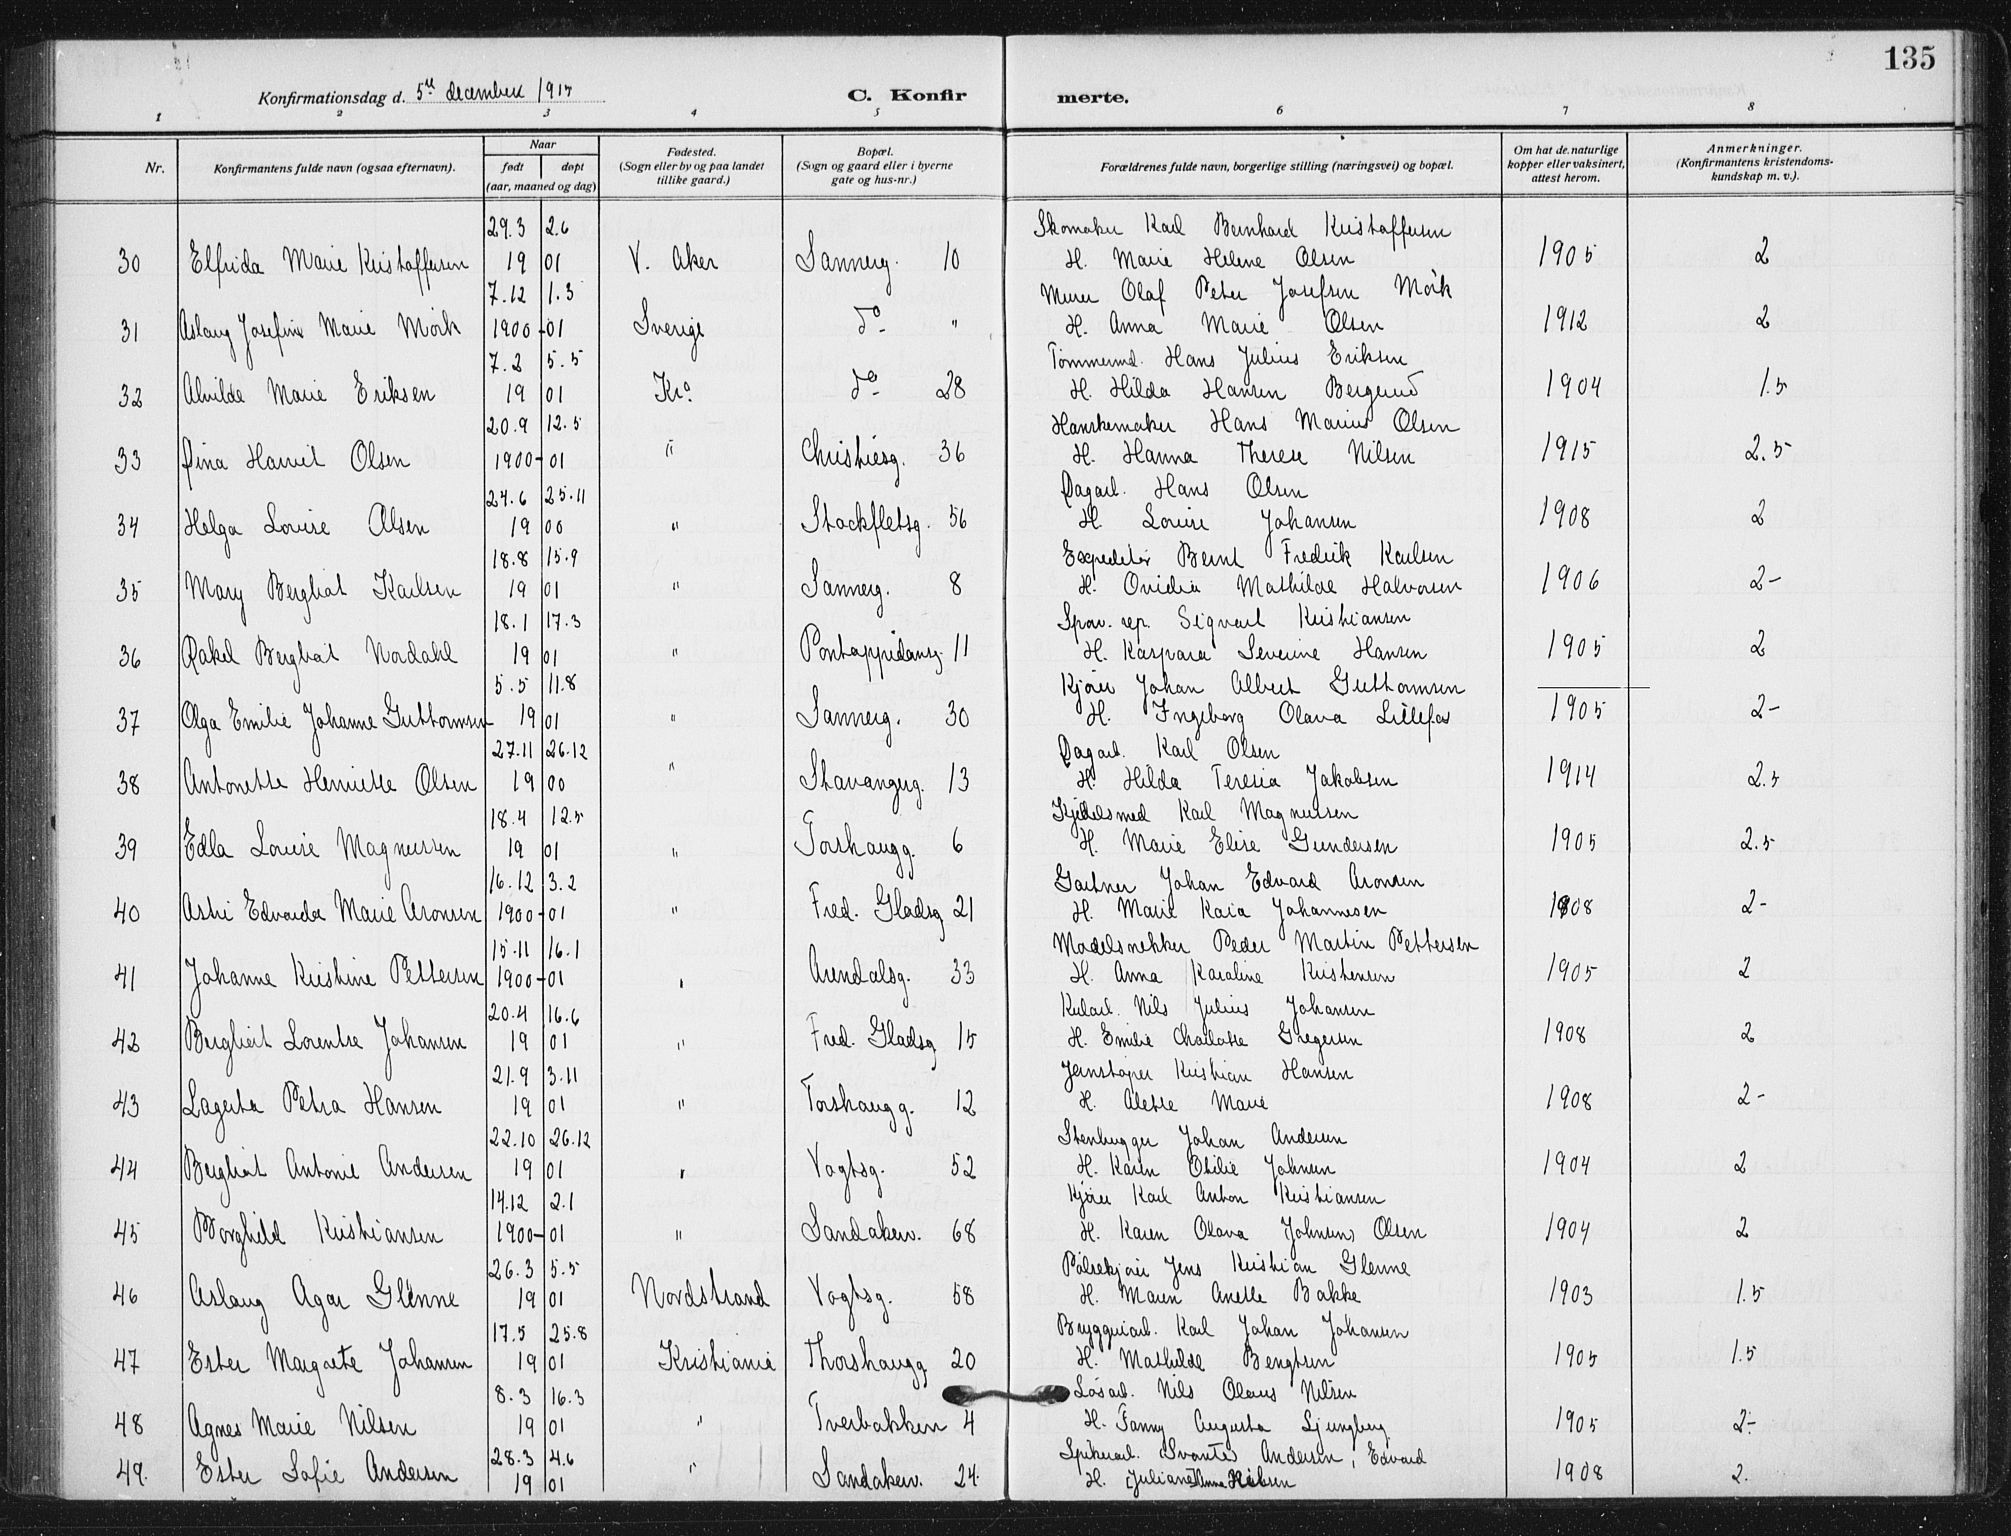 135
Konfirmationsdag d. 5te december 1917 C. Konfirmerte.
1 2 3 4 5 6 7 8
Nr. Konfirmantens fulde navn (ogsaa efternavn). Naar født døpt (aar, maaned og dag) Fødested. (Sogn eller by og paa landet tillike gaard.) Bopæl. (Sogn og gaard eller i byerne gate og hus-nr.) Forældrenes fulde navn, borgerlige stilling (næringsvei) og bopæl. Om hat de naturlige kopper eller vaksinert, attest herom. Anmerkninger. (Konfirmantens kristendomskundskap m. v.).
29.3 2.6 Skomaker Karl Bernhard Kristoffersen
30 Elfrida Marie Kristoffersen 19 01 V. Aker Sannerg. 10 H. Marie Helene Olsen 1905 2
7.12 1.3 Murer Olaf Peter Josefsen Mörk
31 Aslaug Josefine Marie Mörk 1900 - 01 Sverige do " H. Anna Marie Olsen 1912 2
7.2 5.5 Tømmermd. Hans Julius Eriksen
32 Alvilde Marie Eriksen 19 01 Kra do 28 H. Hilda Hansen Bergerud 1904 1.5
20.9 12.5 Hanskemaker Hans Marius Olsen
33 Dina Harriet Olsen 1900 - 01 " Christiesg. 36 H. Hanna Therese Nilsen 1915 2.5
24.6 25.11 Dagarb. Hans Olsen
34 Helga Lovise Olsen 19 00 " Stockfletsg. 56 H. Lovise Johansen 1908 2
18.8 15.9 Expeditör Bernt Fredrik Karlsen
35 Mary Bergliot Karlsen 19 01 " Sannerg. 8 H. Ovidia Mathilde Halvorsen 1906 2-
18.1 17.3 Sporv. rep. Sigvart Kristiansen
36 Rakel Bergliot Nordahl 19 01 " Pontoppidansg. 11 H. Kaspara Severine Hansen 1905 2
5.5 11.8 Kjörer Johan Albert Guttormsen
37 Olga Emilie Johanne Guttormsen 19 01 " Sannerg. 30 H. Ingeborg Olava Lillefos 1905 2-
27.11 26.12 Dagarb. Karl Olsen
38 Antonette Henriette Olsen 19 00 " Stavangerg. 13 H. Hilda Teresia Jakobsen 1914 2.5
18.4 12.5 Kjedelsmed Karl Magnussen
39 Edla Lovise Magnussen 19 01 " Torshaugg. 6 H. Marie Elise Gundersen 1905 2.5
16.12 3.2 Gartner Johan Edvard Aronsen
40 Astri Edvarda Marie Aronsen 1900 - 01 " Fred. Gladsg 21 H. Marie Kaia Johannesen 1908 2-
15.11 16.1 Modelsnekker Peder Martin Pettersen
41 Johanne Kristine Pettersen 1900 - 01 " Arendalsg. 33 H. Anna Karoline Kristensen 1905 2
20.4 16.6 Kularb. Nils Julius Johansen
42 Bergliot Lorentse Johansen 19 01 " Fred. Gladsg 15 H. Emilie Charlotte Gregersen 1908 2
21.9 3.11 Jernstøper Kristian Hansen
43 Lagerta Petra Hansen 19 01 " Torshaugg. 12 H. Alette Marie 1908 2-
22.10 26.12 Stenhugger Johan Andersen
44 Bergliot Antonie Andersen 19 01 " Vogtsg. 52 H. Karen Otilie Johnsen 1904 2
14.12 2.1 Kjörer Karl Anton Kristiansen
45 Borghild Kristiansen 1900 - 01 " Sandakerv. 68 H. Karen Olava Johnsens Olsen 1904 2
26.3 5.5 Pölsekjörer Jens Kristian Glenne
46 Aslaug Agar Glenne 19 01 Nordstrand Vogtsg. 58 H. Maren Anette Bakke 1903 1.5
17.5 25.8 Bryggeriarb. Karl Johan Johansen
47 Ester Margrete Johansen 19 01 Kristiania Thorshaugg 20 H. Mathilde Bengtsen 1905 1.5
8.3 16.3 Løsarb. Nils Olaus Nilsen
48 Agnes Marie Nilsen 19 01 " Tverbakken 4 H. Fanny Augusta Ljungberg 1905 2-
28.3 4.6 Spikerarb. (Svante) Andersen, Edvard
49. Ester Sofie Andersen 19 01 " Sandakerv. 24. H. Juliane Anna Nilsen 1908 2.